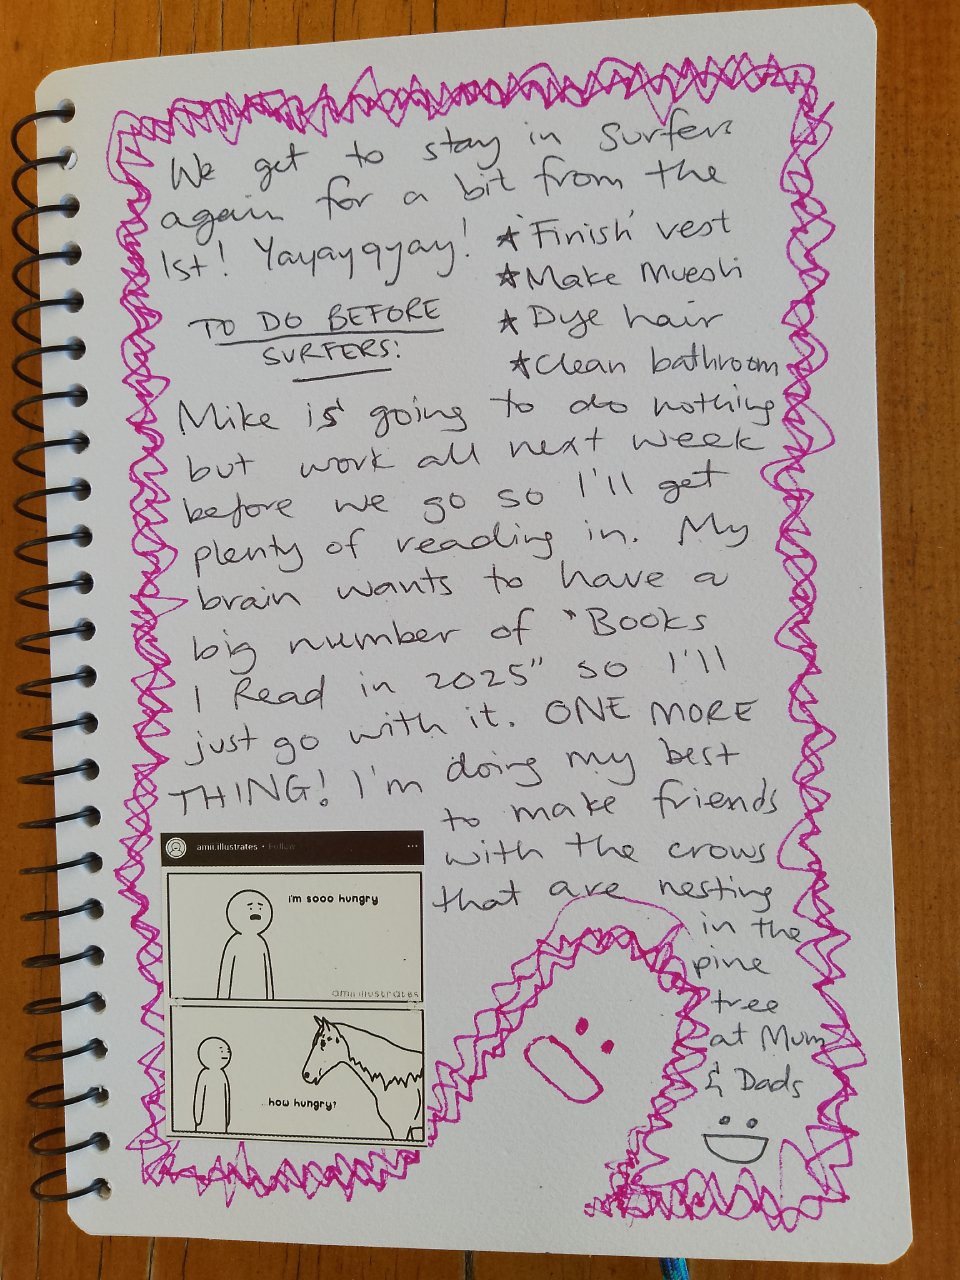 We get to stay in Surfers
again for a bit from the
1st! Yayayayay!
TO DO BEFORE
SURFERS:
★ 'Finish' vest
★ Make muesli
★ Dye hair
★ Clean bathroom
Mike is going to do nothing
but work all next week
before we go so I'll get
plenty of reading in. My
brain wants to have a
big number of "Books
I Read in 2025" so I'll
just go with it. ONE MORE
THING! I'm doing my best
to make friends
with the crows
that are nesting
in the
pine
tree
at Mum
& Dads
amii.illustrates • Follow
i'm sooo hungry
amii.illustrates
how hungry?